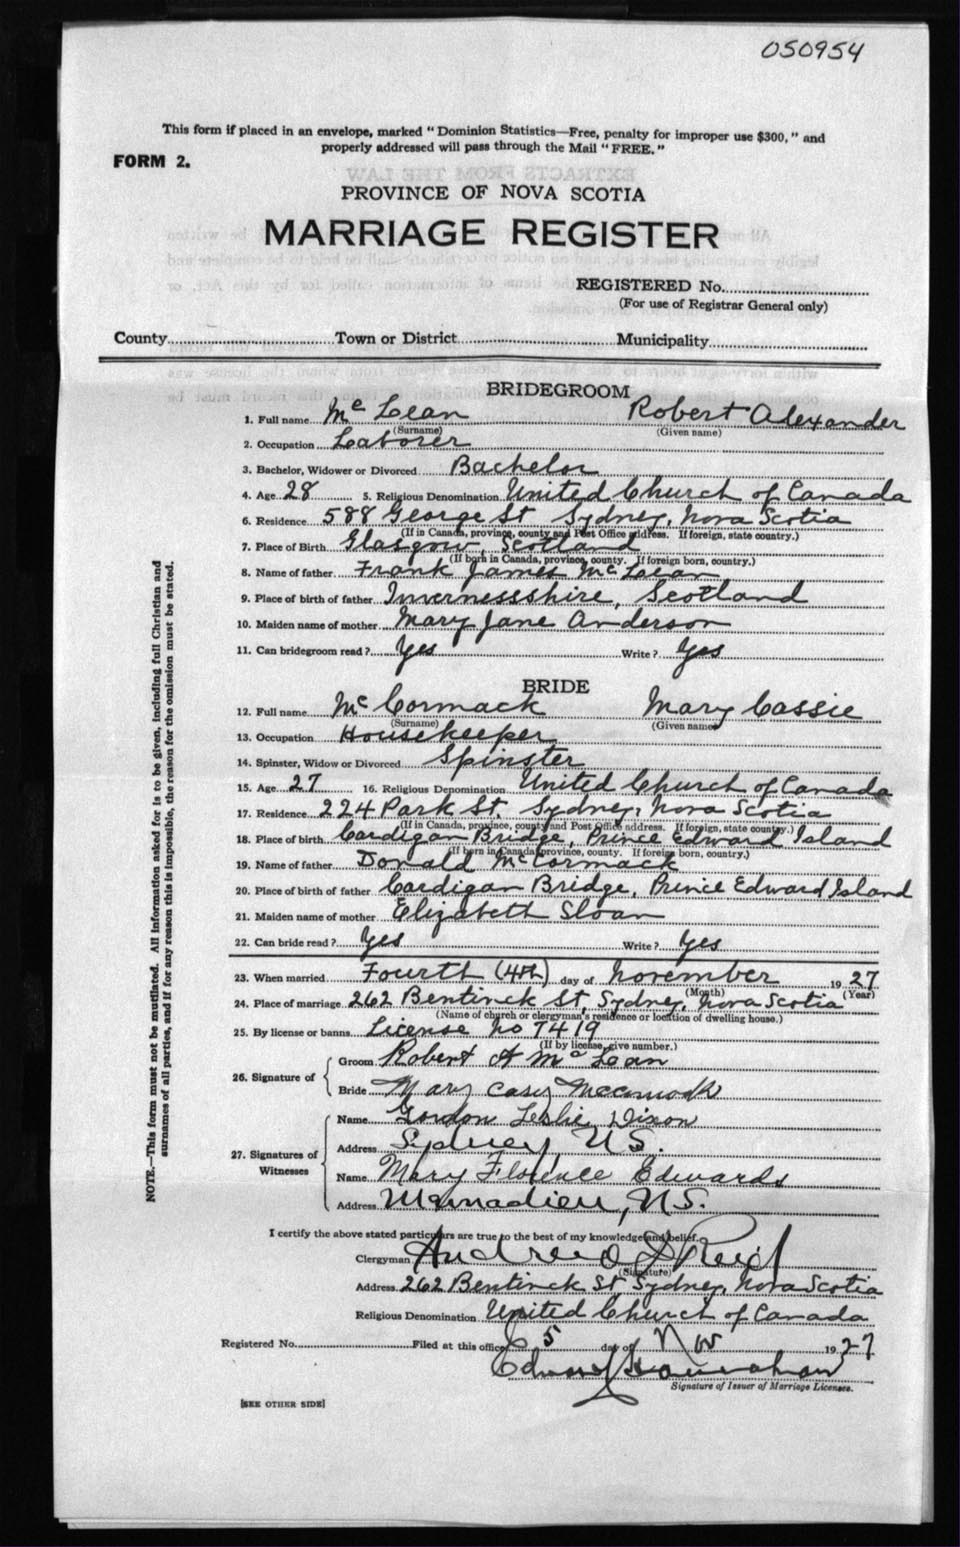 050954
This form if placed in an envelope, marked "Dominion Statistics—Free, penalty for improper use $300," and
properly addressed will pass through the Mail "FREE."
FORM 2.
PROVINCE OF NOVA SCOTIA
MARRIAGE REGISTER
REGISTERED No.
(For use of Registrar General only)
County Town or District Municipality
BRIDEGROOM
1. Full name Mc Lean Robert Alexander
(Surname) (Given name)
2. Occupation Laborer
3. Bachelor, Widower or Divorced Bachelor
4. Age 28 5. Religious Denomination United Church of Canada
6. Residence 588 George St Sydney, Nova Scotia
(If in Canada, province, county and Post Office address. If foreign, state country.)
7. Place of Birth Glasgow, Scotland
(If born in Canada, province, county. If foreign born, country.)
8. Name of father Frank James Mc Lean
9. Place of birth of father Invernessshire, Scotland
10. Maiden name of mother Mary Jane Anderson
11. Can bridegroom read? Yes Write? Yes
BRIDE
12. Full name Mc Cormack Mary Cassie
(Surname) (Given name)
13. Occupation Housekeeper
14. Spinster, Widow or Divorced Spinster
15. Age 27 16. Religious Denomination United Church of Canada
17. Residence 224 Park St. Sydney, Nova Scotia
(If in Canada, province, county and Post Office address. If foreign, state country.)
18. Place of birth Cardigan Bridge, Prince Edward Island
(If born in Canada, province, county. If foreign born, country.)
19. Name of father Donald McCormack
20. Place of birth of father Cardigan Bridge, Prince Edward Island
21. Maiden name of mother Elizabeth Sloan
22. Can bride read? Yes Write? Yes
23. When married Fourth (4th) day of November 1927
(Month) (Year)
24. Place of marriage 262 Bentinck St, Sydney, Nova Scotia
(Name of church or clergyman's residence or location of dwelling house.)
25. By license or banns License No 7419
(If by license, give number.)
26. Signature of
Groom Robert A Mc Lean
Bride Mary Casey Mccormack
27. Signatures of Witnesses
Name Gordon Leslie Dixon
Address Sydney N.S.
Name Mary Florence Edwards
Address N.S.
I certify the above stated particulars are true to the best of my knowledge and belief.
Clergyman Andrew D Reid
(Signature)
Address 262 Bentinck St Sydney, Nova Scotia
Religious Denomination United Church of Canada
Registered No. Filed at this office 5 day of Nov 1927
Signature of Issuer of Marriage Licenses.
[SEE OTHER SIDE]
NOTE.—This form must not be mutilated. All information asked for is to be given, including full Christian and
surnames of all parties, and if for any reason this is impossible, the reason for the omission must be stated.